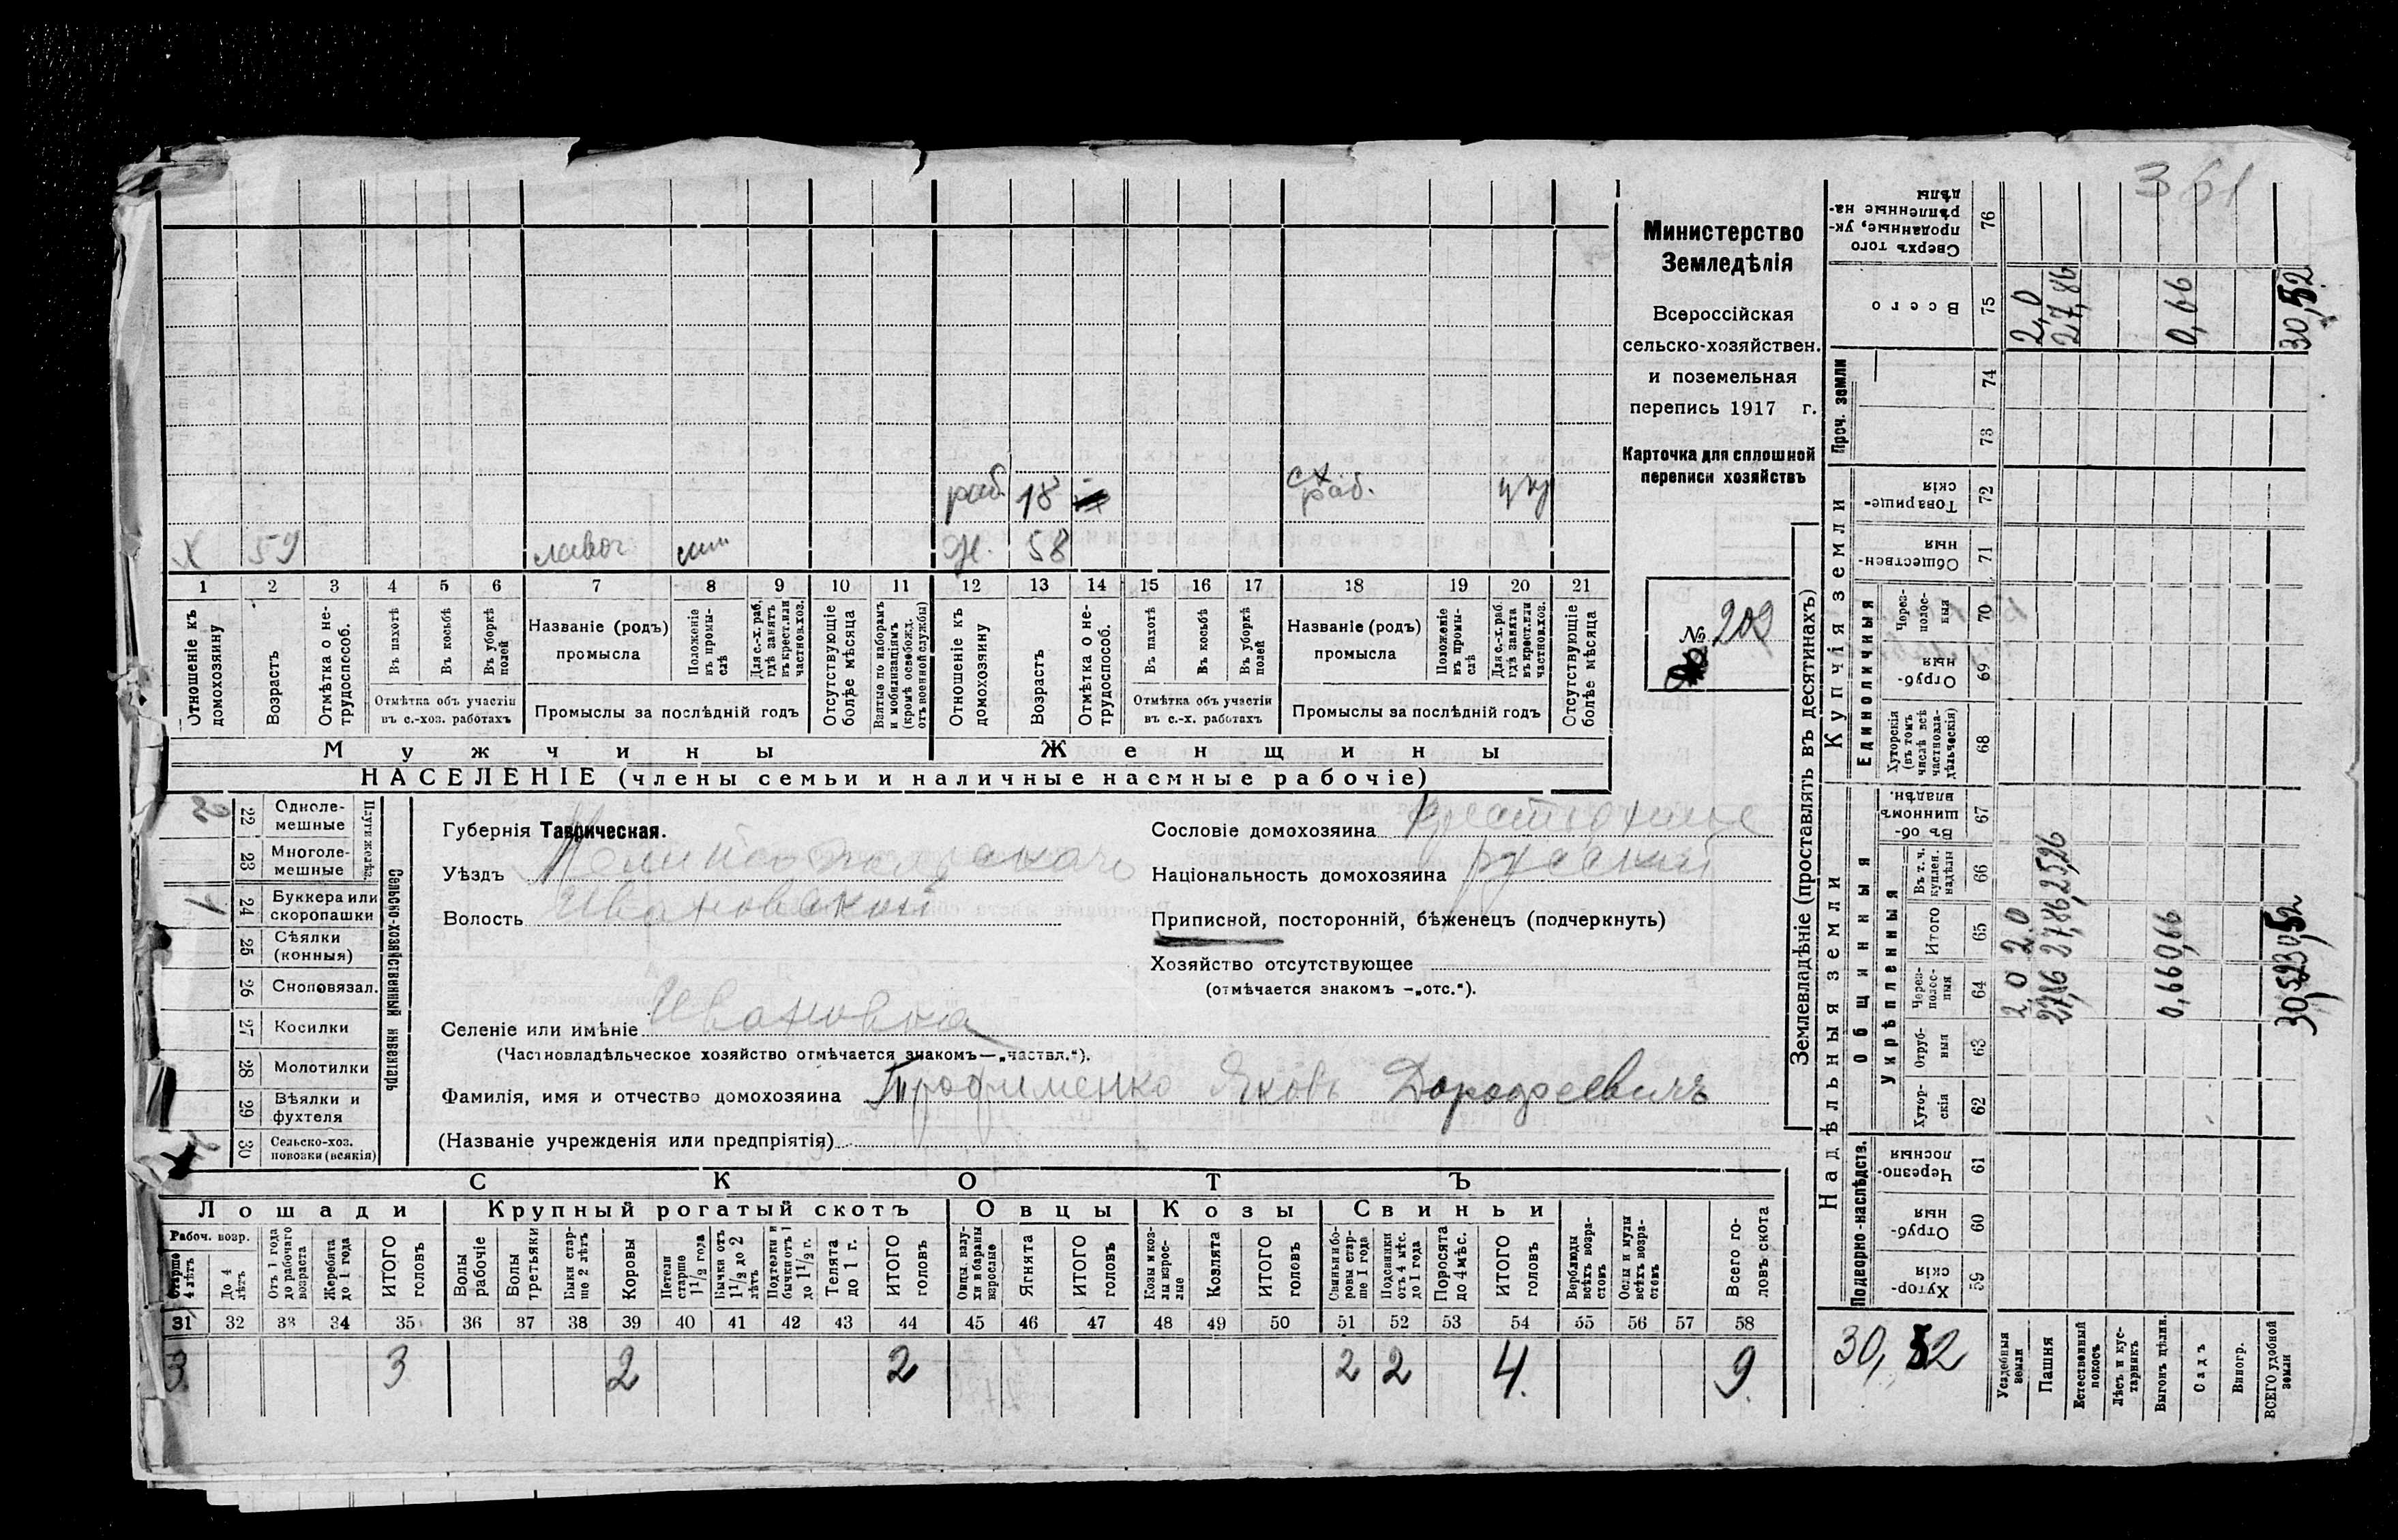 361
Министерство
Земледѣлія
Всероссійская
сельско-хозяйствен.
и поземельная
перепись 1917 г.
Карточка для сплошной
переписи хозяйствъ
№ 209
раб. 18 сх раб.
х 59 лавоч сам ж. 58
1 2 3 4 5 6 7 8 9 10 11 12 13 14 15 16 17 18 19 20 21
Отношеніе къ домохозяину
Возрастъ
Отмѣтка о не-трудоспособ.
Въ пахотѣ
Въ косьбѣ
Въ уборкѣ полей
Отмѣтка объ участіи въ с.-хоз. работахъ
Названіе (родъ) промысла
Положеніе въ промы-слѣ
Для с.-х. раб. гдѣ занятъ въ крест. или частнов. хоз.
Промыслы за послѣдній годъ
Отсутствующіе болѣе мѣсяца
Взятые по наборамъ и мобилизаціямъ (кромѣ освобожд. отъ военной службы)
Отношеніе къ домохозяину
Возрастъ
Отмѣтка о не-трудоспособ.
Въ пахотѣ
Въ косьбѣ
Въ уборкѣ полей
Отмѣтка объ участіи въ с.-х. работахъ
Названіе (родъ) промысла
Положеніе въ промы-слѣ
Для с.-х. раб. гдѣ занята въ крест. или частнов. хоз.
Промыслы за послѣдній годъ
Отсутствующіе болѣе мѣсяца
Мужчины Женщины
НАСЕЛЕНІЕ (члены семьи и наличные наемные рабочіе)
Сельско-хозяйственный инвентарь
Плуги желѣз.
22 Одноле-мешные 2
23 Многоле-мешные
24 Буккера или скоропашки 1
25 Сѣялки (конныя)
26 Сноповязал.
27 Косилки
28 Молотилки
29 Вѣялки и фухтеля
30 Сельско-хоз. повозки (всякія)
Губернія Таврическая.
Уѣздъ Мелитопольскаго
Волость Ивановской
Селеніе или имѣніе Ивановка
(Частновладѣльческое хозяйство отмѣчается знакомъ—„частвл.“).
Сословіе домохозяина
Національность домохозяина русский
Приписной, посторонній, бѣженецъ (подчеркнуть)
Хозяйство отсутствующее
(отмѣчается знакомъ -„отс.“).
Фамилія, имя и отчество домохозяина Трофименко Яковъ Дорофеевичъ
(Названіе учрежденія или предпріятія)
СКОТЪ
Лошади Крупный рогатый скотъ Овцы Козы Свиньи
Рабоч. возр.
Старше 4 лѣтъ
До 4 лѣтъ
Отъ 1 года до рабочаго возраста
Жеребята до 1 года
ИТОГО головъ
Волы рабочіе
Волы третьяки
Быки стар-ше 2 лѣтъ
Коровы
Нетели старше 1 1/2 года
Бычки отъ 1 1/2 до 2 лѣтъ
Подтелки и бычки отъ 1 до 1 1/2 г.
Телята до 1 г.
ИТОГО головъ
Овцы, валу-хи и бараны взрослые
Ягнята
ИТОГО головъ
Козы и коз-лы взрос-лые
Козлята
ИТОГО головъ
Свиньи и бо-ровы стар-ше 1 года
Подсвинки отъ 4 мѣс. до 1 года
Поросята до 4 мѣс.
ИТОГО головъ
Верблюды всѣхъ возра-стовъ
Ослы и мулы всѣхъ возра-стовъ
Всего го-ловъ скота
31 32 33 34 35 36 37 38 39 40 41 42 43 44 45 46 47 48 49 50 51 52 53 54 55 56 57 58
3 3 2 2 2 2 4. 9.
Землевладѣніе (проставлять въ десятинахъ)
Купчія земли
Надѣльныя земли
Сверхъ того проданные, ук-рѣпленные на-дѣлы 76
Всего 75 2,0 27,86 0,66 30,52
Проч. земли 74 73
Товарище-скія 72
Обществен-ныя 71
Единоличныя
Через-полос-ныя 70
Отруб-ныя 69
Хуторскія (въ томъ числѣ всѣ частновла-дѣльческія) 68
Общинныя
Въ об-щинномъ владѣн. 67
Укрѣпленныя
Въ т. ч. куплен. надѣлы 66 25,26
Итого 65 2,0 27,86 0,66 30,52
Через-полос-ныя 64 2,0 27,86 0,66 30,52
Отруб-ныя 63
Хутор-скія 62
Подворно-наслѣдств.
Черезпо-лосныя 61
Отруб-ныя 60
Хутор-скія 59
30,52
Усадебныя земли
Пашня
Естественный покосъ
Лѣсъ и кус-тарникъ
Выгонъ дѣлим.
Садъ
Виногр.
ВСЕГО удобной земли